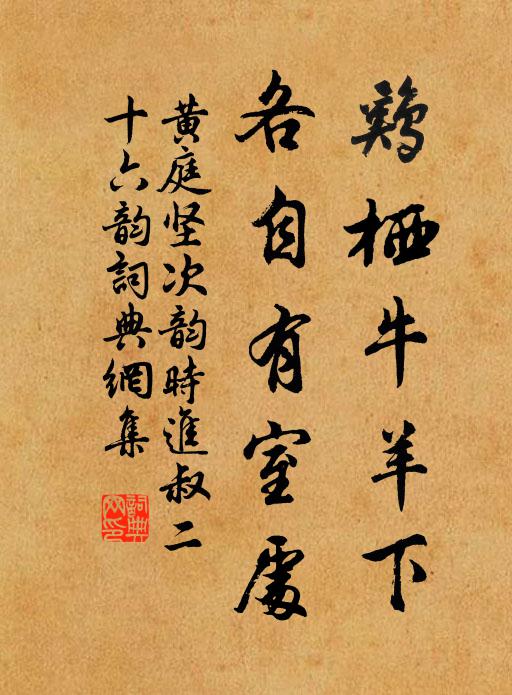 鷄栖牛羊下
各自有室處
黄庭坚次韵時進叔二
十六韵詞典網集
詞典網印